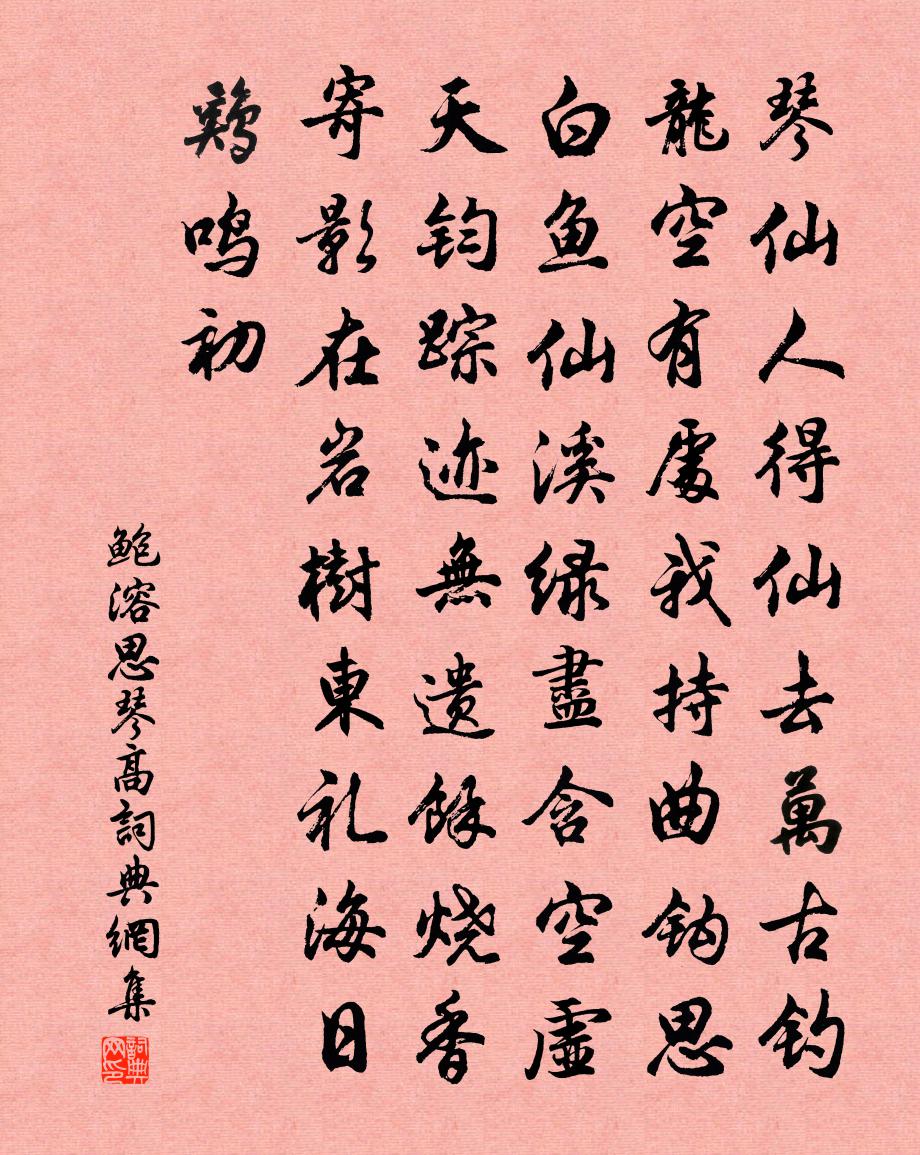 琴仙人得仙去萬古钓
龍空有處我持曲钩思
白鱼仙溪绿盡含空虛
天钧踪迹無遗馀烧香
寄影在岩樹東礼海日
鷄鸣初
鲍溶思琴高詞典網集
詞典网印